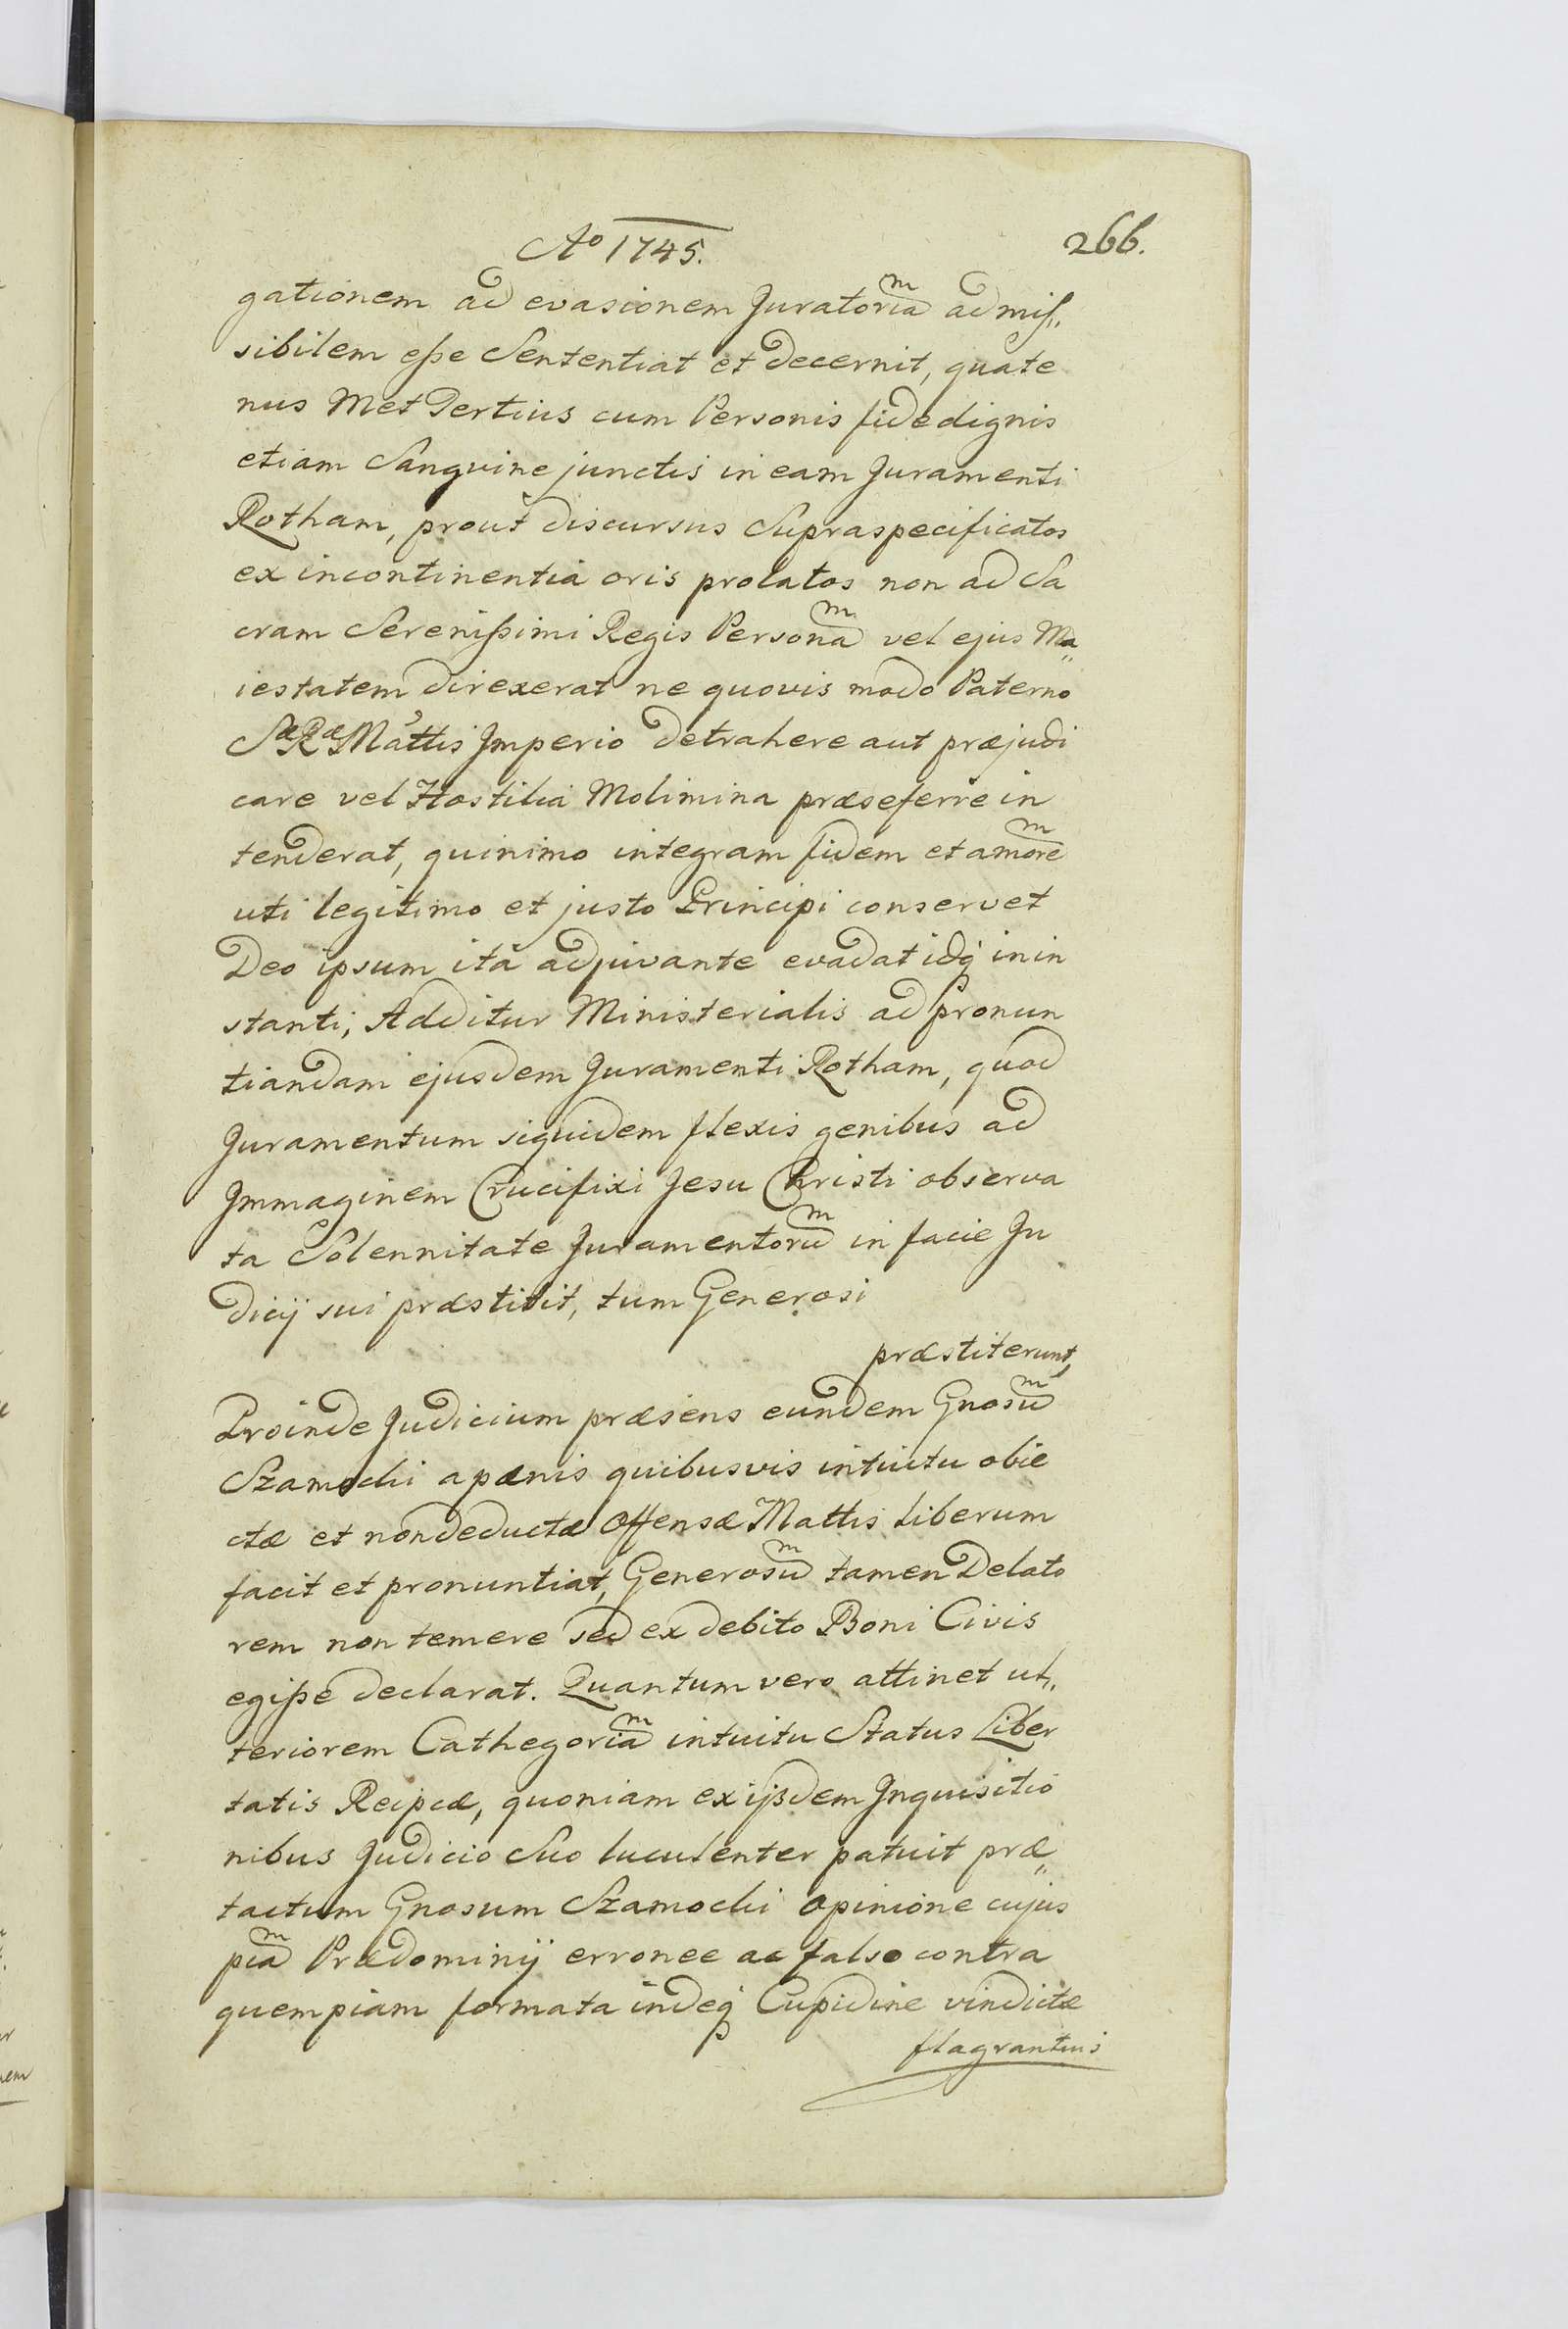 Ao 1745.
266.
gationem ad evasionem Juratoriam admiss„
sibilem esse Sententiat et decernit, quate
nus Met Tertius cum Personis fide dignis
etiam Sanguine junctis in eam Juramenti
Rotham, prout discursus Supraspecificatos
ex incontinentia oris prolatos non ad Sa
cram Serenissimi Regis Personam vel ejus Ma„
iestatem direxerat ne quovis modo Paterno
Sæ Ræ Mattis Imperio detrahere aut præjudi
care vel Hostilia Molimina præseferre in
tenderat, quinimo integram fidem et amorem
uti legitimo et justo Principi conservet
Deo ipsum ita adjuvante evadat idq in in
stanti, Additur Ministerialis ad pronun
tiandam ejusdem Juramenti Rotham, quod
Juramentum siquidem flexis genibus ad
Immaginem Crucifixi Jesu Christi observa
ta Solennitate Juramentorum in facie Ju
dicij sui præstitit, tum Generosi
præstiterunt,
Proinde Judicium præsens eundem Gnosum
Szamocki a pænis quibusvis intuitu obie
ctæ et non deductæ Offensæ Mattis liberum
facit et pronuntiat, Generosum tamen Delato
rem non temere sed ex debito Boni Civis
egisse declarat. Quantum vero attinet ul„
teriorem Cathegoriam intuitu Status Liber
tatis Reipcæ, quoniam ex ijsdem Inquisitio
nibus Judicio Suo luculenter patuit præ„
tactum Gnosum Szamocki opinione cujus
piam Prædominij erronee ac falso contra
quempiam formata indeq Cupidine vindictæ
flagrantius